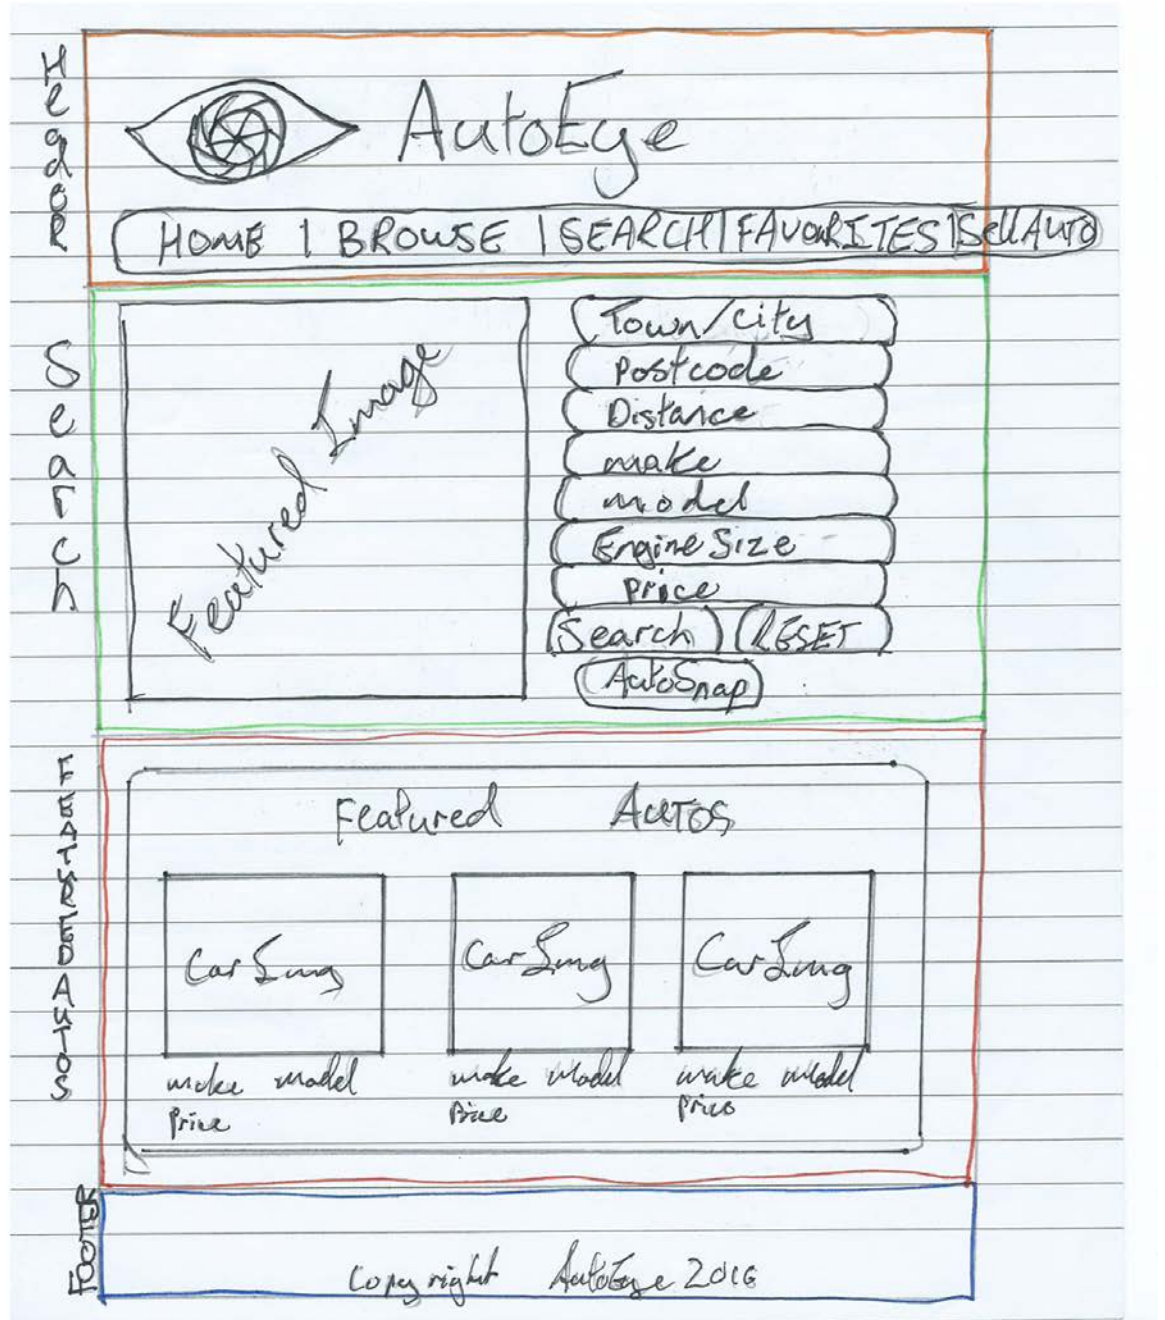 HeadeR
AutoEye
HOME | BROWSE | SEARCH | FAVOURITES | Sell AUTO
Search
Featured Image
Town/City
Postcode
Distance
make
model
Engine Size
Price
Search RESET
AutoSnap
FEATURED AUTOS
Featured AUTOS
Car Img Car Img Car Img
make model make model make model
Price Price Price
FOOTER
Copyright AutoEye 2016